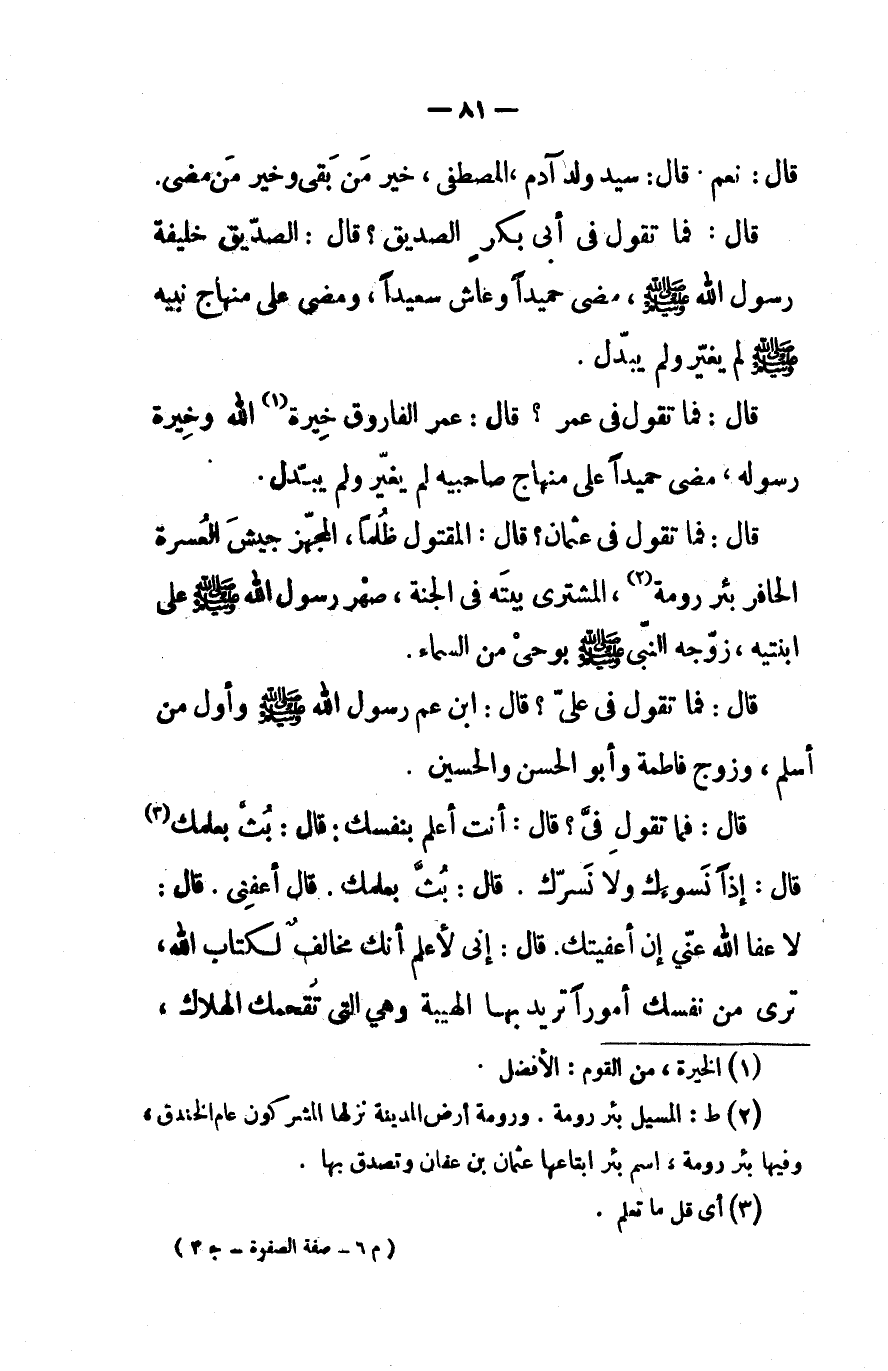 — ٨١ —
قال : نعم . قال: سيد ولد آدم ،المصطفى ، خير مَن بَقى وخير مَن مضى.
قال : فما تقول فى أبى بكرٍ الصديق ؟ قال : الصدّيق خليفة
رسول الله ﷺ ، مضى حميداً وعاش سعيداً ، ومضى على منهاج نبيه
ﷺ لم يغيّر ولم يبدّل .
قال : فما تقول فى عمر ؟ قال : عمر الفاروق خِيرة(١) الله وخِيرة
رسوله ، مضى حميداً على منهاج صاحبيه لم يغيّر ولم يبدّل .
قال : فما تقول فى عثمان؟ قال : المقتول ظُلماً ، المجهّز جيشَ العُسرة
الحافر بئر رومة(٢) ، المشترى بيتَه فى الجنة ، صهْر رسول الله ﷺ على
ابنتيه ، زوّجه النّبي ﷺ بوحىْ من السماء .
قال : فما تقول فى علىّ ؟ قال : ابن عم رسول الله ﷺ وأول من
أسلم ، وزوج فاطمة وأبو الحسن والحسين .
قال : فما تقول فىَّ ؟ قال : أنت أعلم بنفسك . قال : بُثَّ بعلمك(٣)
قال : إذاً نَسوءك ولا نَسرّك . قال : بُثَّ بعلمك . قال أعفنى . قال :
لا عفا الله عنّي إن أعفيتك. قال : إنى لأعلم أنك مخالفٌ لكتاب الله ،
ترى من نفسك أموراً تريد بها الهيبة وهي التى تُقحمك الهلاك ،
(١) الخيرة ، من القوم : الأفضل .
(٢) ط : المسيل بئر رومة . ورومة أرض المدينة نزلها المشركون عام الخندق ،
وفيها بئر رومة ، اسم بئر ابتاعها عثمان بن عفان وتصدق بها .
(٣) أى قل ما تعلم .
( م ٦ – صفة الصفوة – ج ٣ )